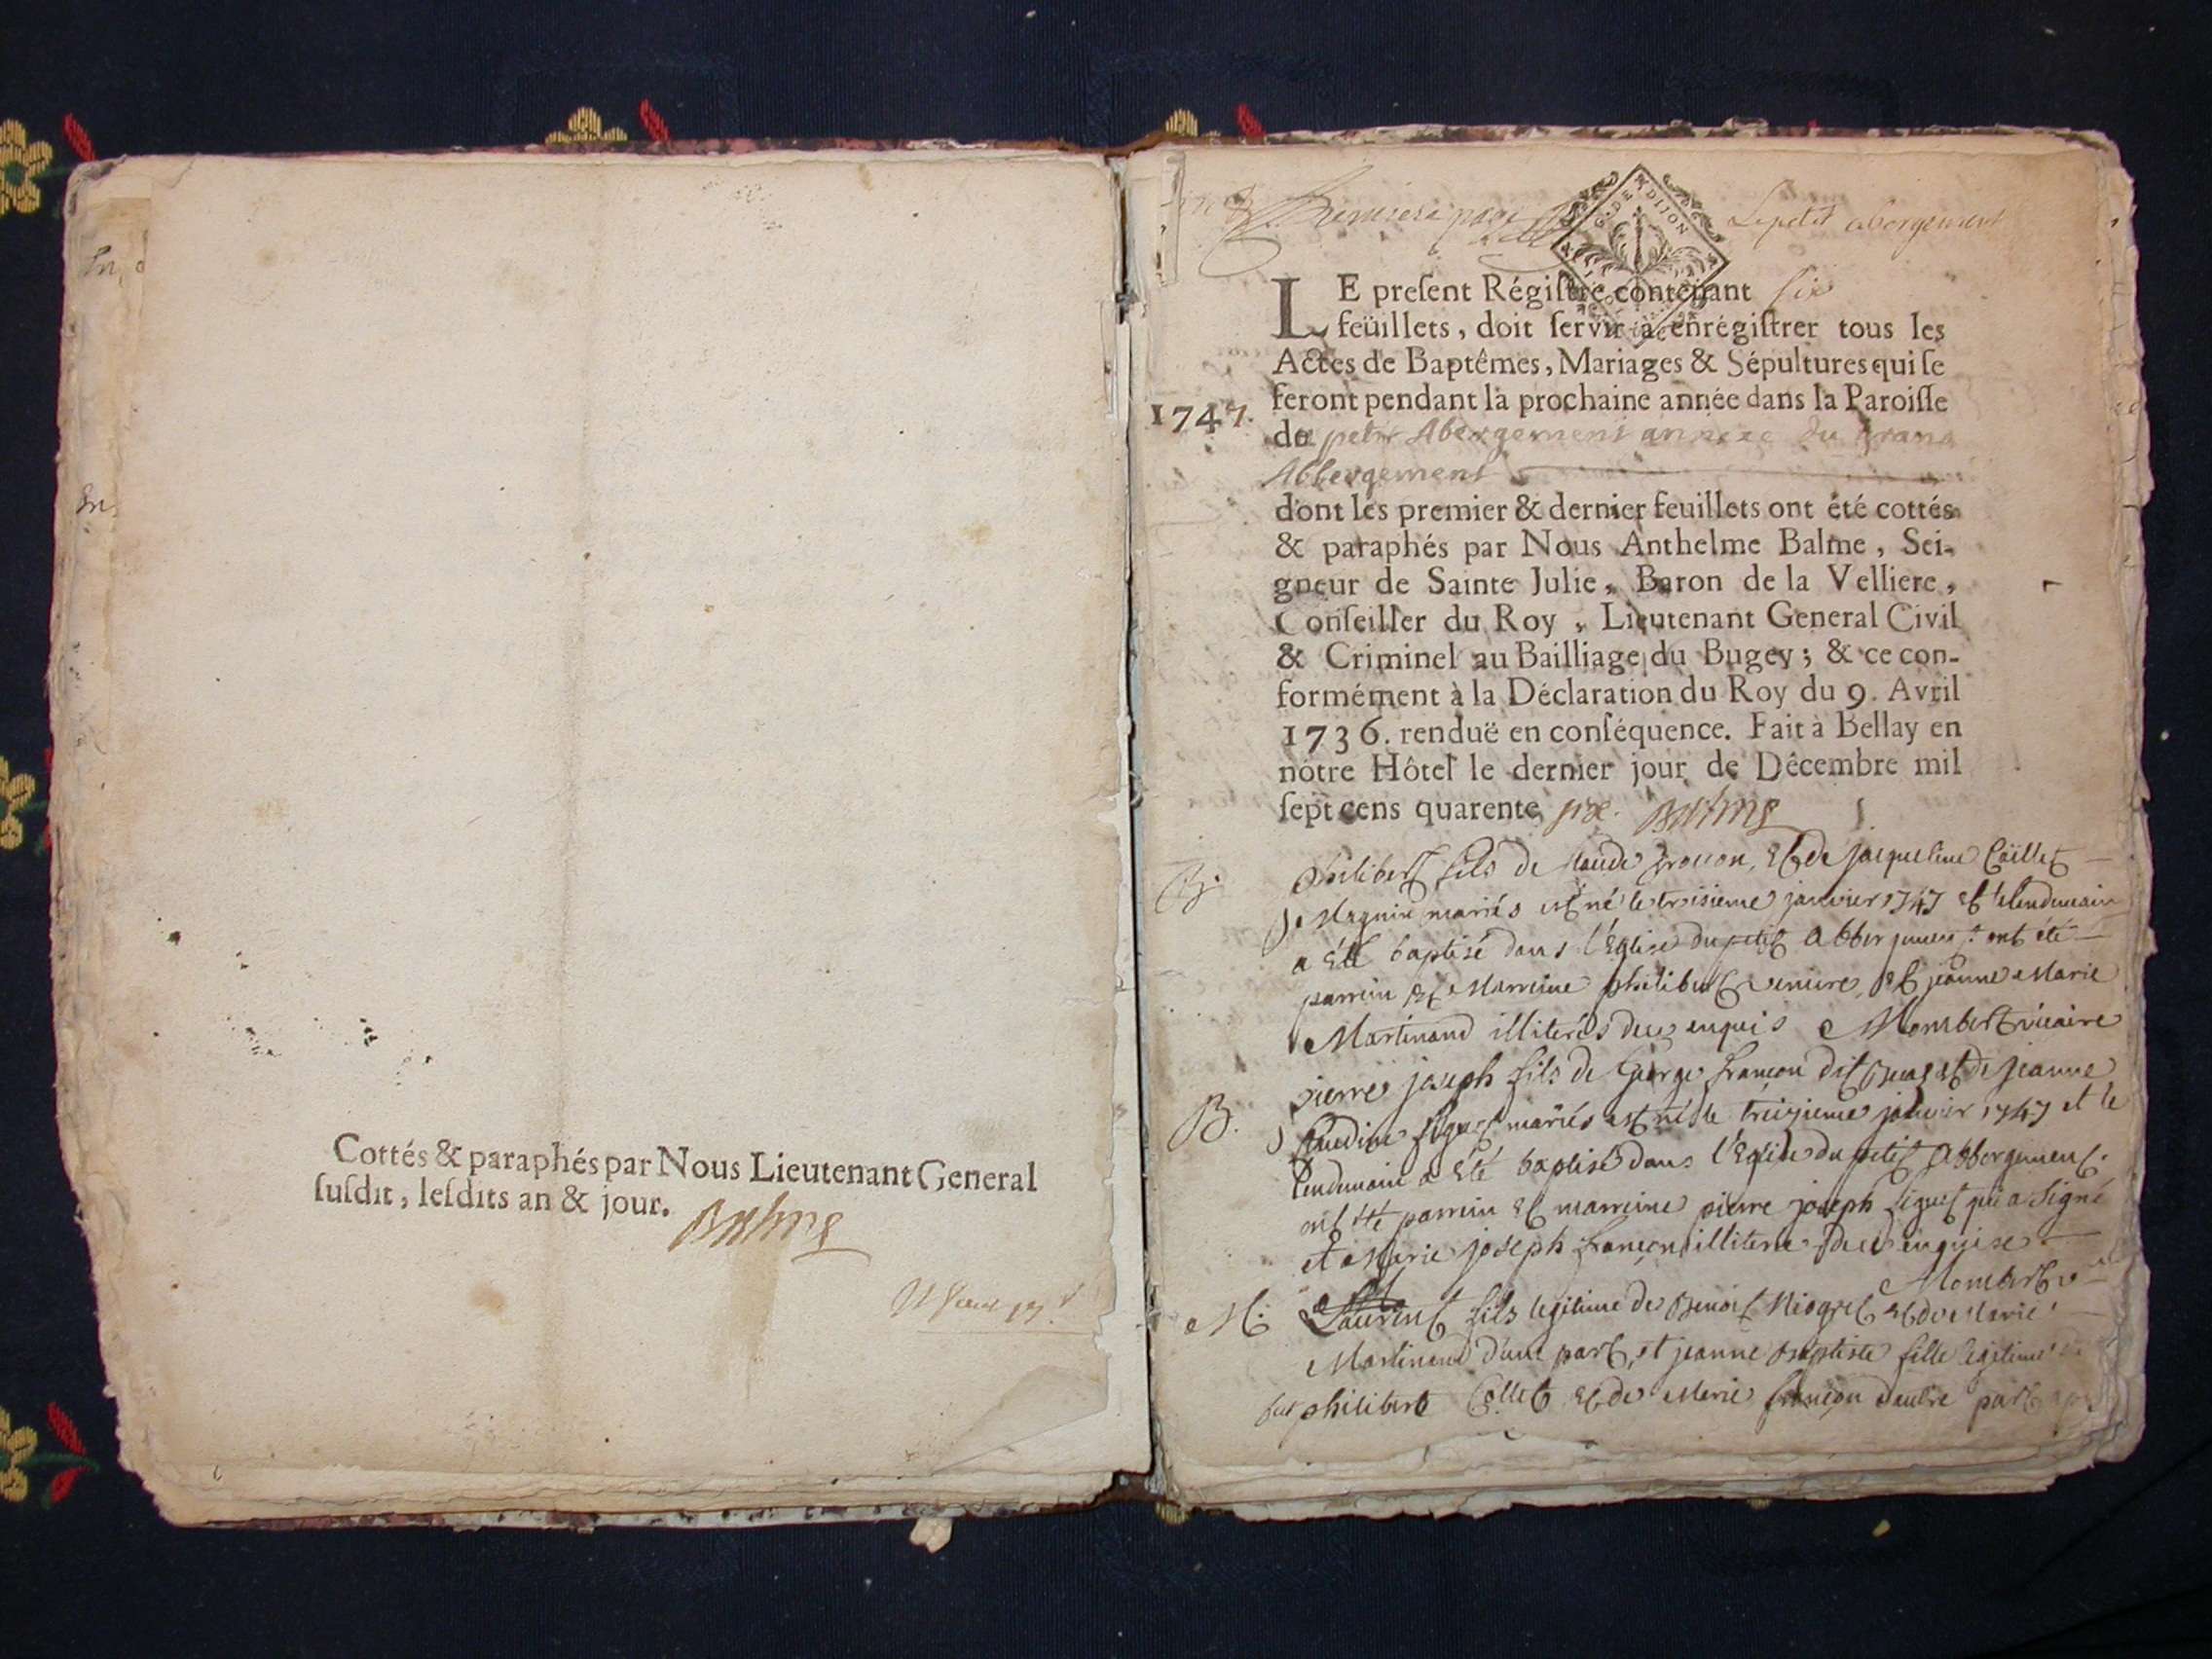 Cottés & paraphés par Nous Lieutenant General
ſuſdit, leſdits an & jour. Balme
Premiere page
G. DE DIJON
Le petit abergement
LE preſent Régiſtre contenant six
feüillets, doit ſervir à enrégiſtrer tous les
Actes de Baptêmes, Mariages & Sépultures qui ſe
feront pendant la prochaine année dans la Paroiſſe
1747.
de petit Abergement annexe du grand
Abbergement
dont les premier & dernier feuillets ont été cottés
& paraphés par Nous Anthelme Balme, Sei-
gneur de Sainte Julie, Baron de la Velliere,
Conſeiller du Roy, Lieutenant General Civil
& Criminel au Bailliage du Bugey; & ce con-
formément à la Déclaration du Roy du 9. Avril
1736. renduë en conſéquence. Fait à Bellay en
nôtre Hôtel le dernier jour de Décembre mil
ſept cens quarente six. Balme
B. philibert fils de Claude et de jacqueline Caillet
mariés est né le troisieme janvier 1747 et lendemain
a été baptisé dans l'Eglise du petit Abbergement ont été
parrein et Marreine philibert et jeanne Marie
Martinand illiterés de ce enquis Mombert vicaire
B. pierre joseph fils de George françon dit et de jeanne
Claudine mariés est né le treizieme janvier 1747 et le
lendemain a été baptisé dans l'Eglise du petit Abbergement.
ont été parrein et marreine pierre joseph qui a signé
et Marie joseph françon illiterée de ce enquise
Mombert v
M. Laurent fils legitime de Benoit Niogret et de Marie
Martinand d'une part, et jeanne Baptiste fille legitime
philibert Collet et de Marie françon d'autre part